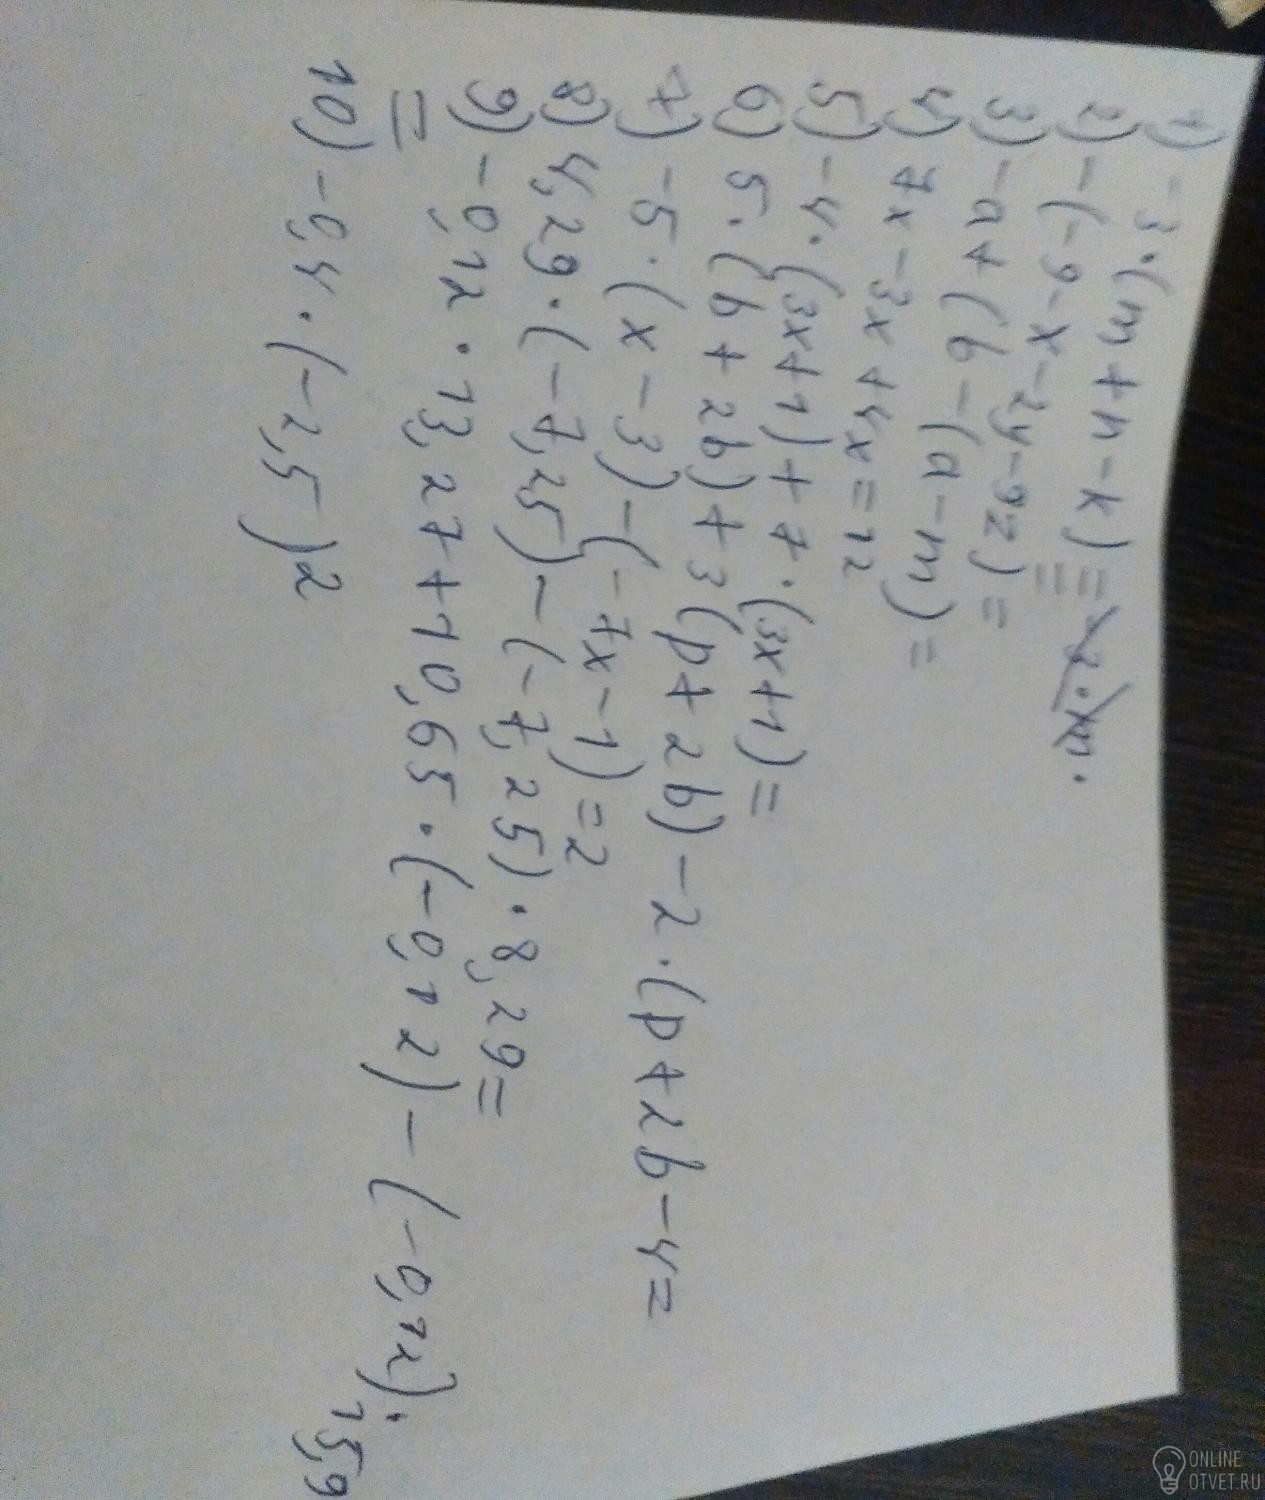 1) -3·(m+n-k)=
2) -(-9-x-2y-9z)=
3) -a+(b-(a-m)=
4) 7x-3x+4x=12
5) -4·(3x+1)+7·(3x+1)=
6) 5·(b+2b)+3(p+2b)-2·(p+2b-4=
7) -5·(x-3)-(-7x-1)=2
8) 4,29·(-7,25)-(-7,25)·8,29=
9) -0,12·13,27+10,65·(-0,12)-(-0,12)·15,9
=
10) -0,4·(-2,5)2
ONLINE
OTVET.RU